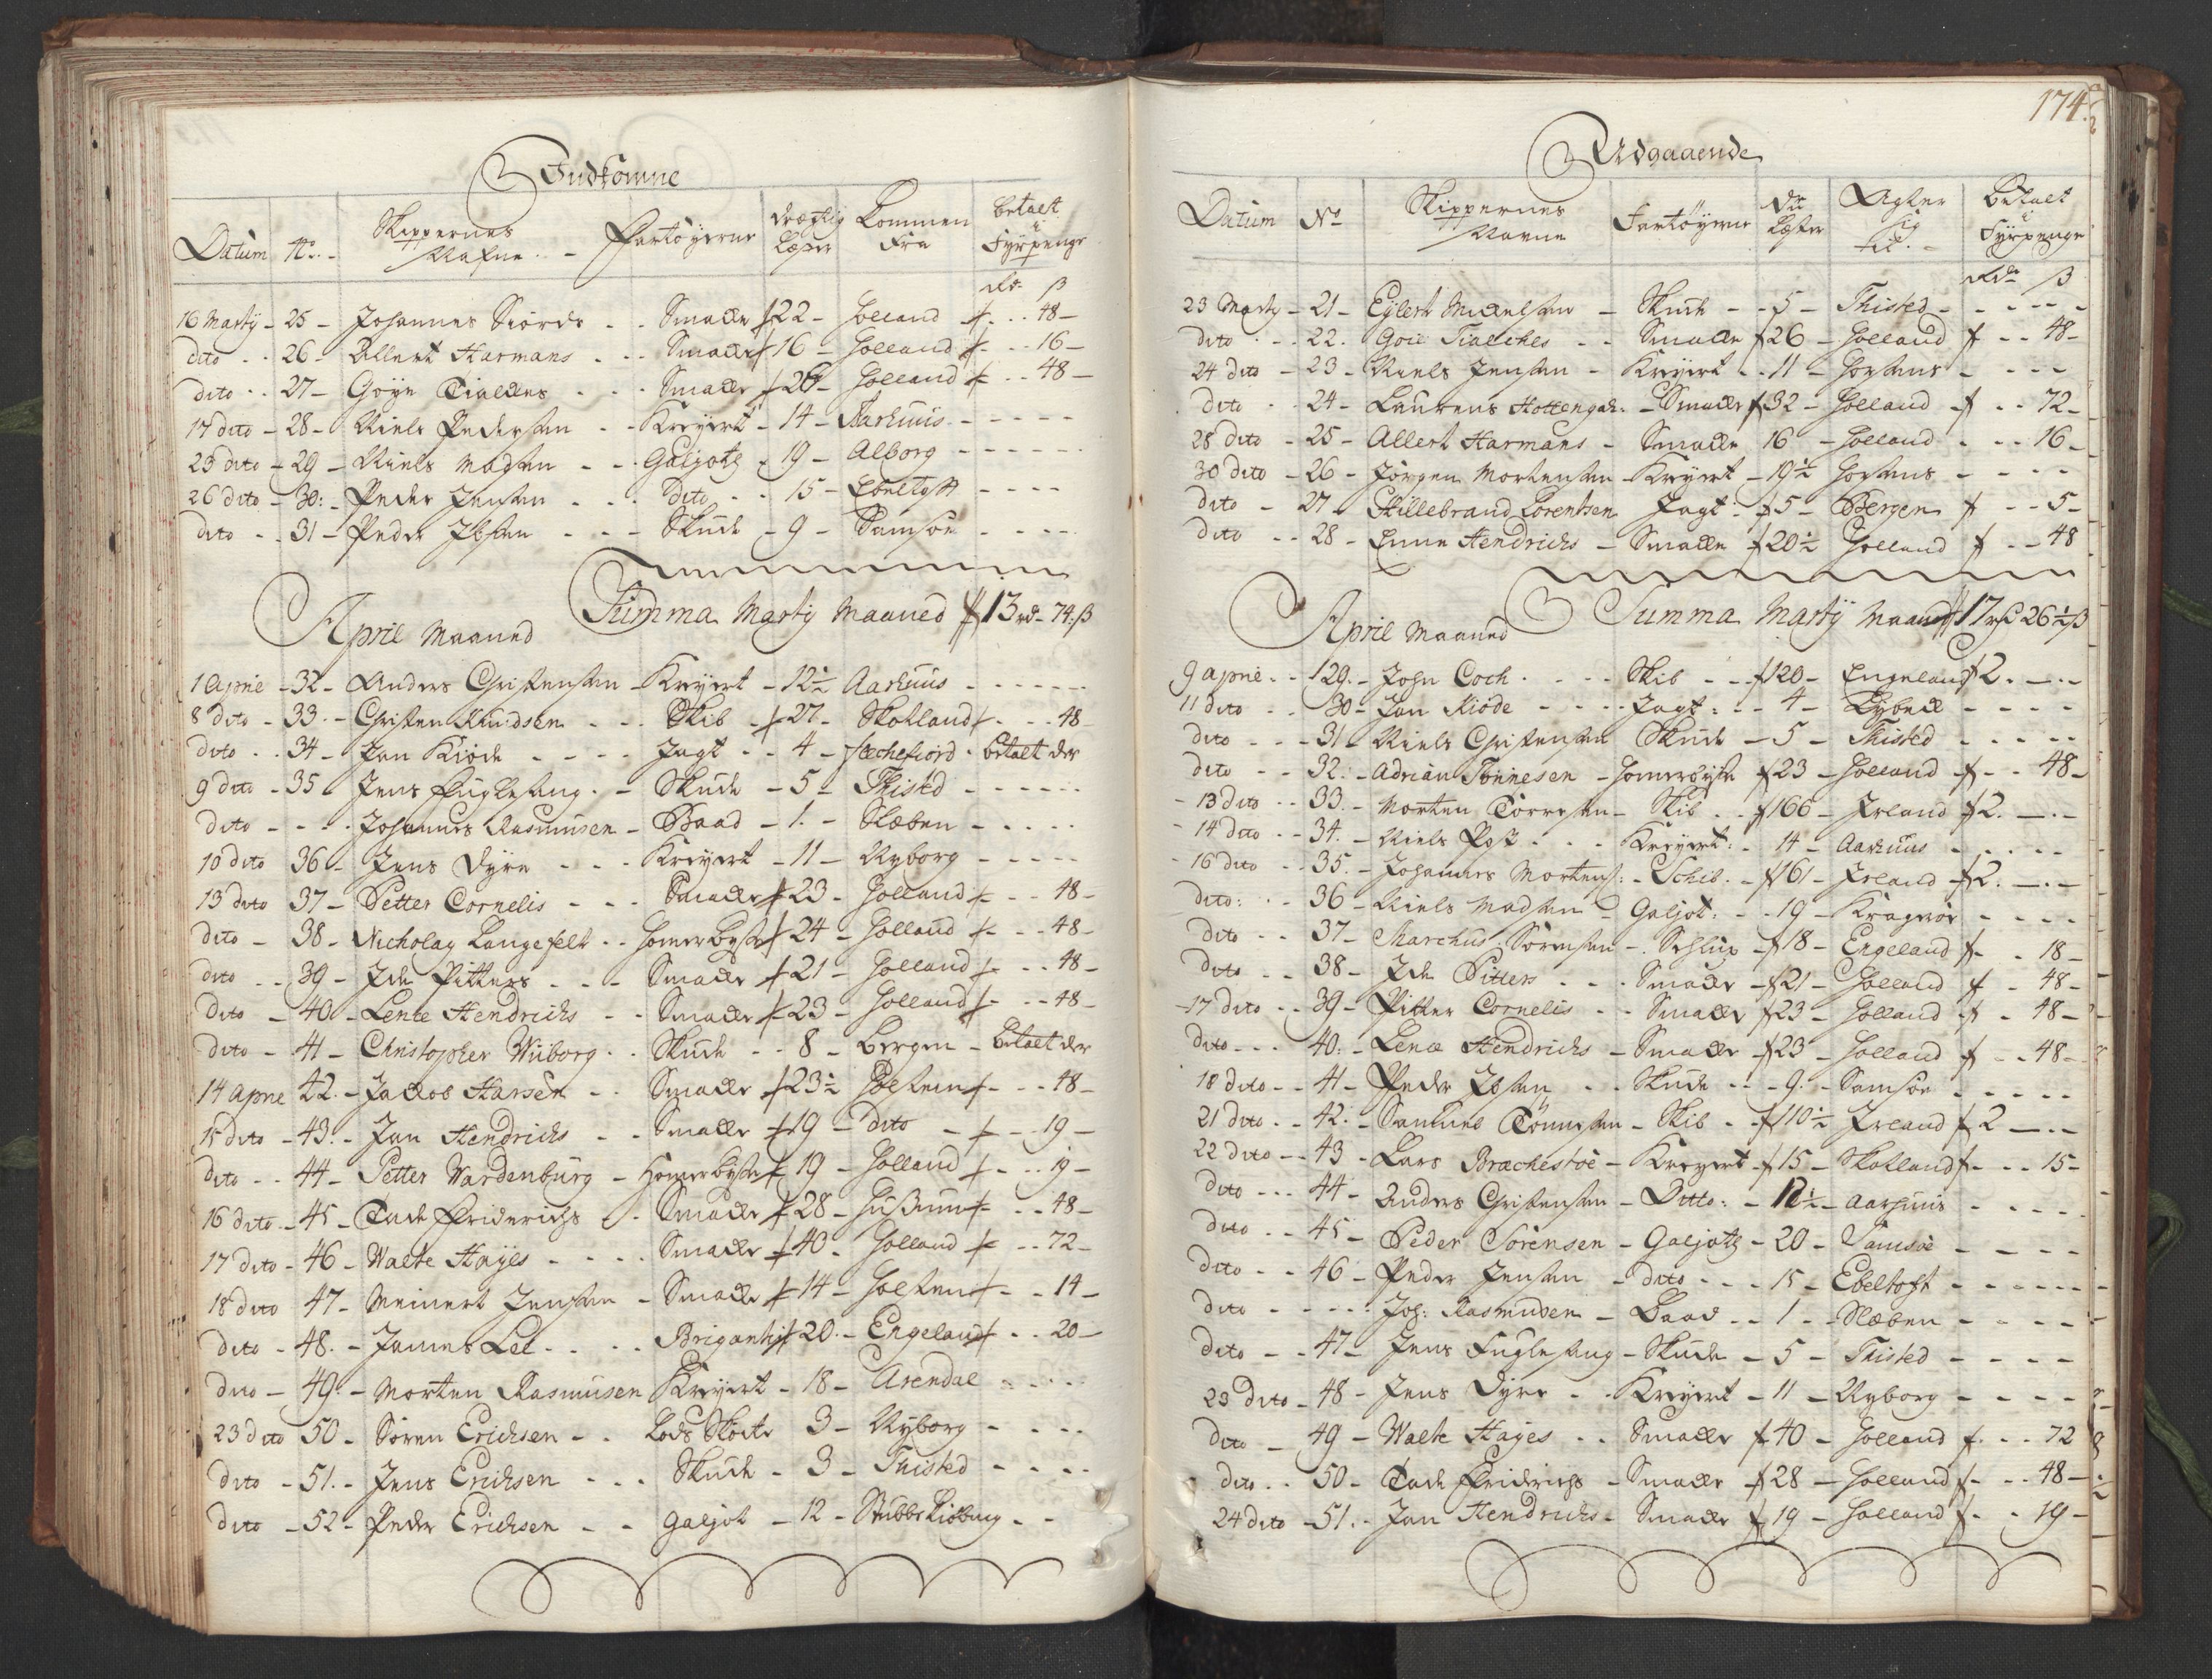 Indkomne
Datum No. Skippernes Nafne. Fartøyerne Drægtig Læster Kommen Fra betalt i Fyrpenge
Rd. ß
16 Martÿ - 25 - Johannes Siords - - Smakke 22 - Holland - - 48 -
dito - - 26 - Allert Harmans - - Smakke 16 - Holland - - 16 -
dito - - 27 - Goÿe Tialkes - - Smakke 26 - Holland - - 48 -
17 dito - 28 - Niels Pedersen - - Kreÿert - 14 - Aarhuus - - -
23 dito - 29 - Niels Madsen - - Galjoth - 19 - Alborg - - -
26 dito - 30: - Peder Jensen - - dito - - 15 - Ebeltofft - - -
dito - - 31 - Peder Ibsen - - - Skude - 9 - Samsøe - - -
Summa Martÿ Maaned 13 rd - 74 ß
April Maaned
1 Aprie - 32 - Anders Christensen - Kreÿert - 12½ Aarhuus - - -
8 dito - 33. - Christen Knudsen - - Skib - 27 - Skotland - - 48 -
dito - - 34 - Jan Kiöde - - - Jagt - - 4 - Flechefiord - betalt der
9 dito - 35 - Jens Fuglesang. - Skude - 5 - Thisted - - -
dito - - - - Johannes Rasmusen - Baad - 1. - Næben - - -
10 dito 36 - Jens Dyre - - - Kreÿert - 11 - Nyborg - - -
13 dito 37 - Petter Cornelis - - - Smakke 23 - Holland - - 48 -
dito - 38 - Nicholay Langefelt - - Homerbøyse 24 - Holland - - 48 -
dito - - 39 - Ide Pitters - - - Smakke 21 - Holland - - 48 -
dito - 40 - Lente Hendrichs - - Smakke 23 - Holland - - 48 -
dito - 41 - Christopher Wiiborg - - Skude - - 8 - Bergen - betalt der
14 Aprie 42. - Jackob Hansen - - Smakke 23½ Holsten - - 48 -
15 dito - 43. - Jan Hendrichs - - Smakke 19 - dito - - 19 -
dito - - 44 - Petter Wardenburg - Homerbøyse 19 - Holland - - 19 -
16 dito - 45 - Tade Friderichs - - Smakke 28 - Hussum - - 48 -
17 dito - 46 - Walte Hayes - - - Smakke 40 - Holland - - 72 -
18 dito 47 - Meinert Jensen - Smakke 14 - Holsten - - 14 -
dito - 48. - James Lee - - - Brigantin 20. - Engeland - - 20 -
dito - 49. - Morten Rasmusen Kreÿert - 18 - Arendal - - -
23 dito 50 - Søren Erichsen - - Lods Skøite 3 - Nÿborg - - -
dito - 51. - Jens Erichsen - - - Skude - 3 - Thisted - - -
dito - 52 - Peder Erichsen - - Galjot - 12 - Stubbekiøbing - -
174.
Udgaaende
Datum No Skippernes Navne Fartöyerne Dr: Læster Agter sig til. - Betalt i Fyrpenge
Rdr ß
23 Martÿ - 21 - Eylert Mickelsen - Skude - - 5 - Thisted - - -
dito - - 22. Goie Tialches - - Smakke 26 - Holland - - 48 -
24 dito - 23 - Niels Jensen - Kreÿert - - 11 - Horsens - - -
dito - - 24 - Laurens Hottengah. - Smakke 32 - Holland - - 72 -
28 dito - 25 - Allert Harmans - Smakke 16 - Holland - - 16 -
30 dito - 26 - Jörgen Mortensen - Kreÿert - 19½ Horsens - - -
dito - 27 - Hillebrand Lorentsen Jagt - 5 - Bergen - - 5 -
dito - - 28 - Enne Hendrichs - Smakke 20½ Holland - - 48
Summa Martÿ Maaned 17 rd 26½ ß
April Maaned
9 Aprie - - 29. - John Coch - - - Skib - - 120 - Engeland 2. - -
11 dito - - 30 - Jan Kiöde - - - Jagt: - - 4 - Lÿbeck - - -
dito - - - 31 - Niels Christensen Skude - 5 - Thisted - - -
dito - - 32. - Adrian Tönnesen - Homerbøyse 23 - Holland - - 48 -
13 dito - - 33. - Morten Torresen - Skib - - 166 - Irland 2. - -
14 dito - - 34. - Niels Post - - - Kreÿert: - 14 - Aarhuus - - -
16 dito - - 35. - Johannes Mortens: - Schib. - 161 - Irland 2. - -
dito: - - 36 - Niels Madsen - Galjot: - - 19 - Kragerøe - - -
dito - - 37 - Marchus Sörensen - Schlup - 18 - Engeland - - 18 -
dito - - 38 - Ide Pitters - - - Smakke - 21 - Holland - 48 -
17 dito - - 39 - Pitter Cornelis - - Smakke 23 - Holland - 48 -
dito - - - 40. - Lence Hendrichs - Smakke - 23 - Holland - - 48 -
18 dito - - 41 - Peder Ibsen - - Skude - - 9. - Samsøe - - -
21 dito - - 42. - Samuel Tönnesen - Skib - - 110½ - Irland 2 - -
22 dito - - 43 - Lars Brachestöe - Kreyert - 15 - Skotland - - 15 -
dito - - - 44 - Anders Christensen - Ditto: - 12½ - Aarhuus - - -
dito - - 45 - Peder Sörensen - Galjoth - 20 - Samsöe - - -
dito - - 46 - Peder Jensen - dito - - - 15 - Ebeltoft - - -
dito - - - - Joh: Rasmusen - Baad - - 1 - Næben - - -
dito - - 47 - Jens Fuglesang - Skude - 5 - Thisted - - -
23 dito - 48 - Jens Dyre - - Kreÿert - 11 - Nyborg - - -
dito - 49 - Walte Hayes - - Smakke 40 - Holland - - 72
dito - - 50 - Tade Friderichs - Smakke - 28 - Holland - - 48 -
24 dito - 51. - Jan Hendrichs - Smakke 19 - Holland - - 19 -